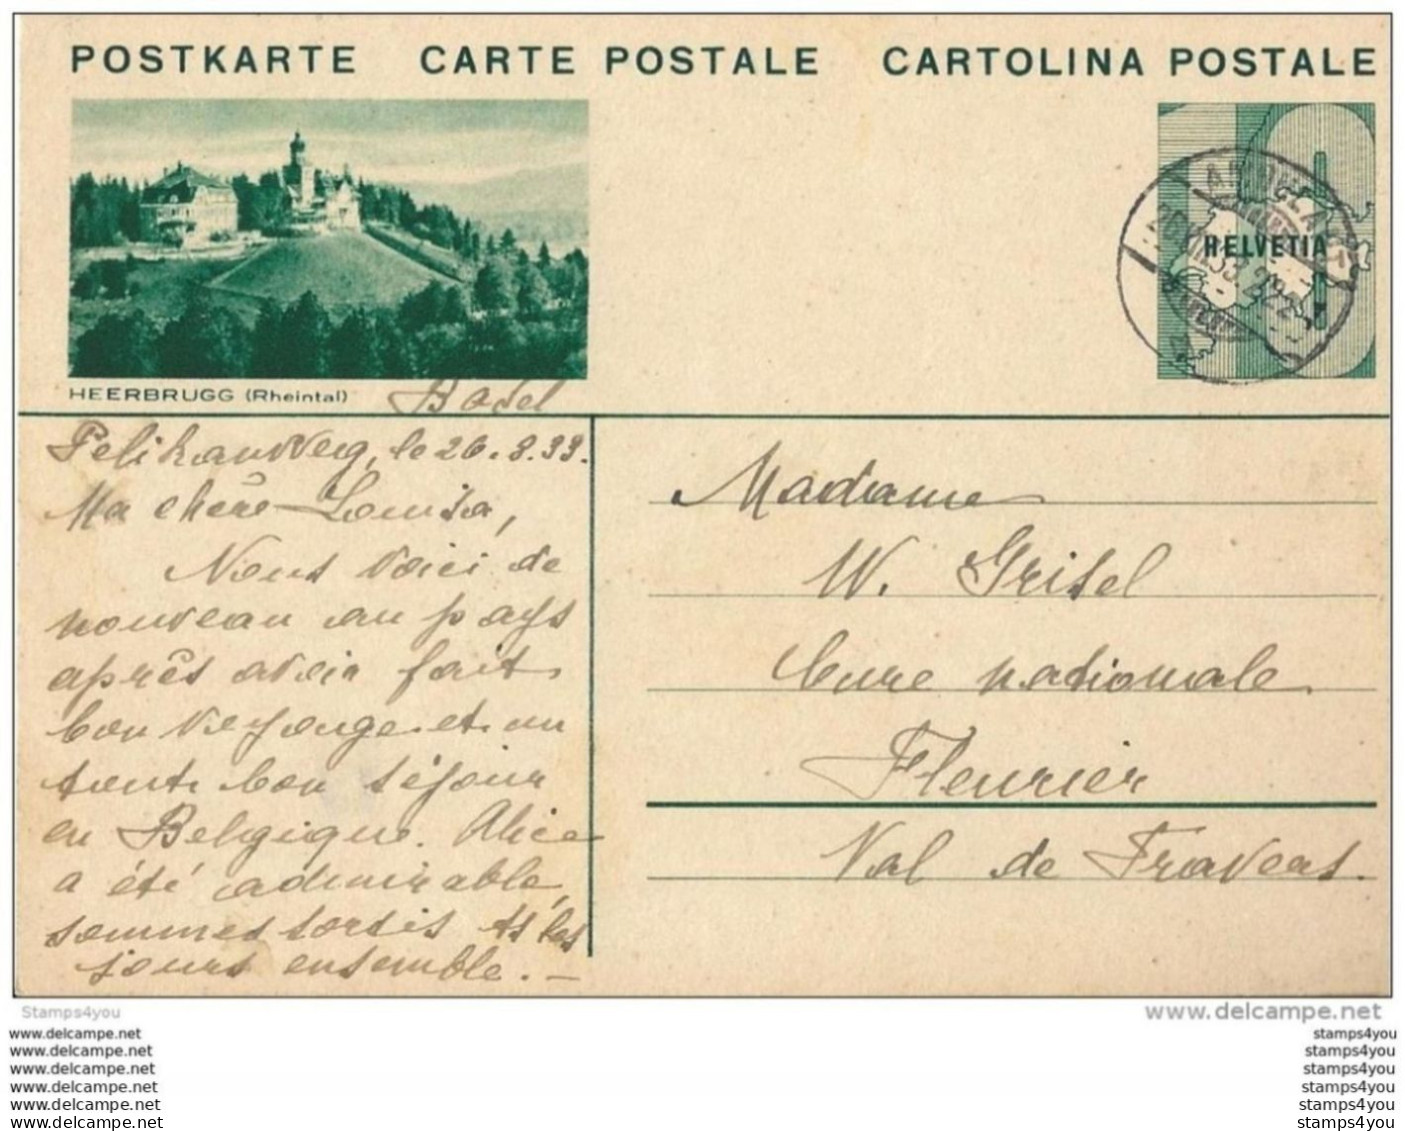 POSTKARTE CARTE POSTALE CARTOLINA POSTALE
HELVETIA
HEERBRUGG (Rheintal)
Basel
Pelikanweg, le 26.8.33.
Ma chère Louisa,
Nous voici de
nouveau au pays
après avoir fait
bon voyage et un
tout bon séjour
en Belgique. Alice
a été admirable,
sommes sortis ts les
jours ensemble. –
Madame
W. Grisel
Cure nationale
Fleurier
Val de Travers.
Stamps4you
www.delcampe.net
www.delcampe.net
www.delcampe.net
www.delcampe.net
www.delcampe.net
www.delcampe.net
www.delcampe.net
stamps4you
stamps4you
stamps4you
stamps4you
stamps4you
stamps4you